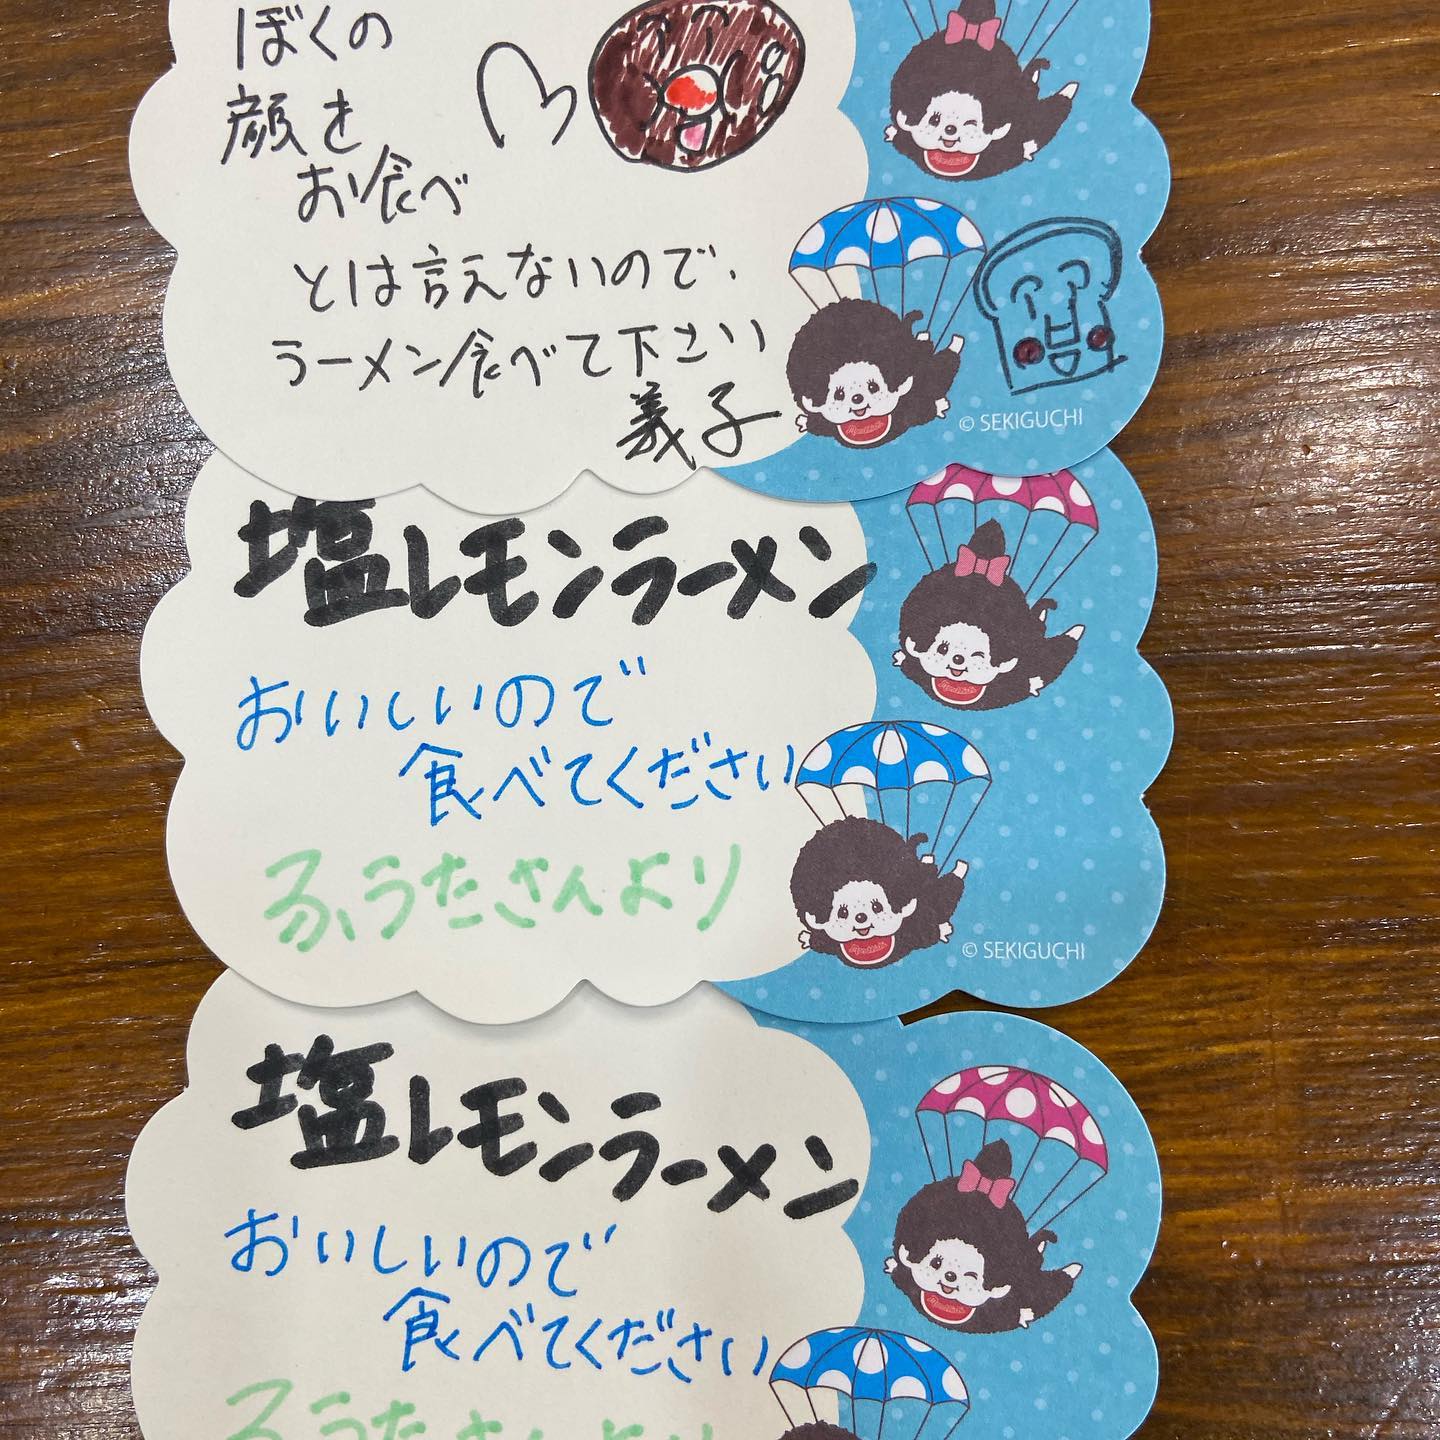 ぼくの
顔を
お食べ
とは言えないので、
ラーメン食べて下さい
義子
© SEKIGUCHI
塩レモンラーメン
おいしいので
食べてください
ふうたさんより
© SEKIGUCHI
塩レモンラーメン
おいしいので
食べてください
ふうたさんより